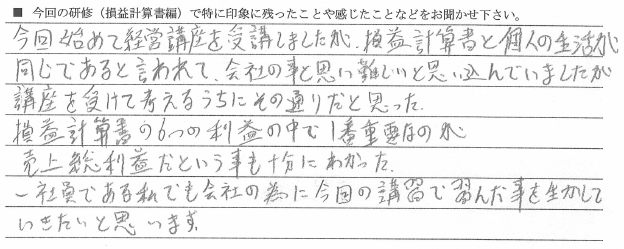 ■ 今回の研修（損益計算書編）で特に印象に残ったことや感じたことなどをお聞かせ下さい。
今回始めて経営講座を受講しましたが、損益計算書と個人の生活が
同じであると言われて、会社の事と思い難しいと思い込んでいましたが
講座を受けて考えるうちにその通りだと思った。
損益計算書の6つの利益の中で1番重要なのが
売上総利益だという事も十分にわかった。
一社員である私でも会社の為に今回の講習で習んだ事を生かして
いきたいと思います。